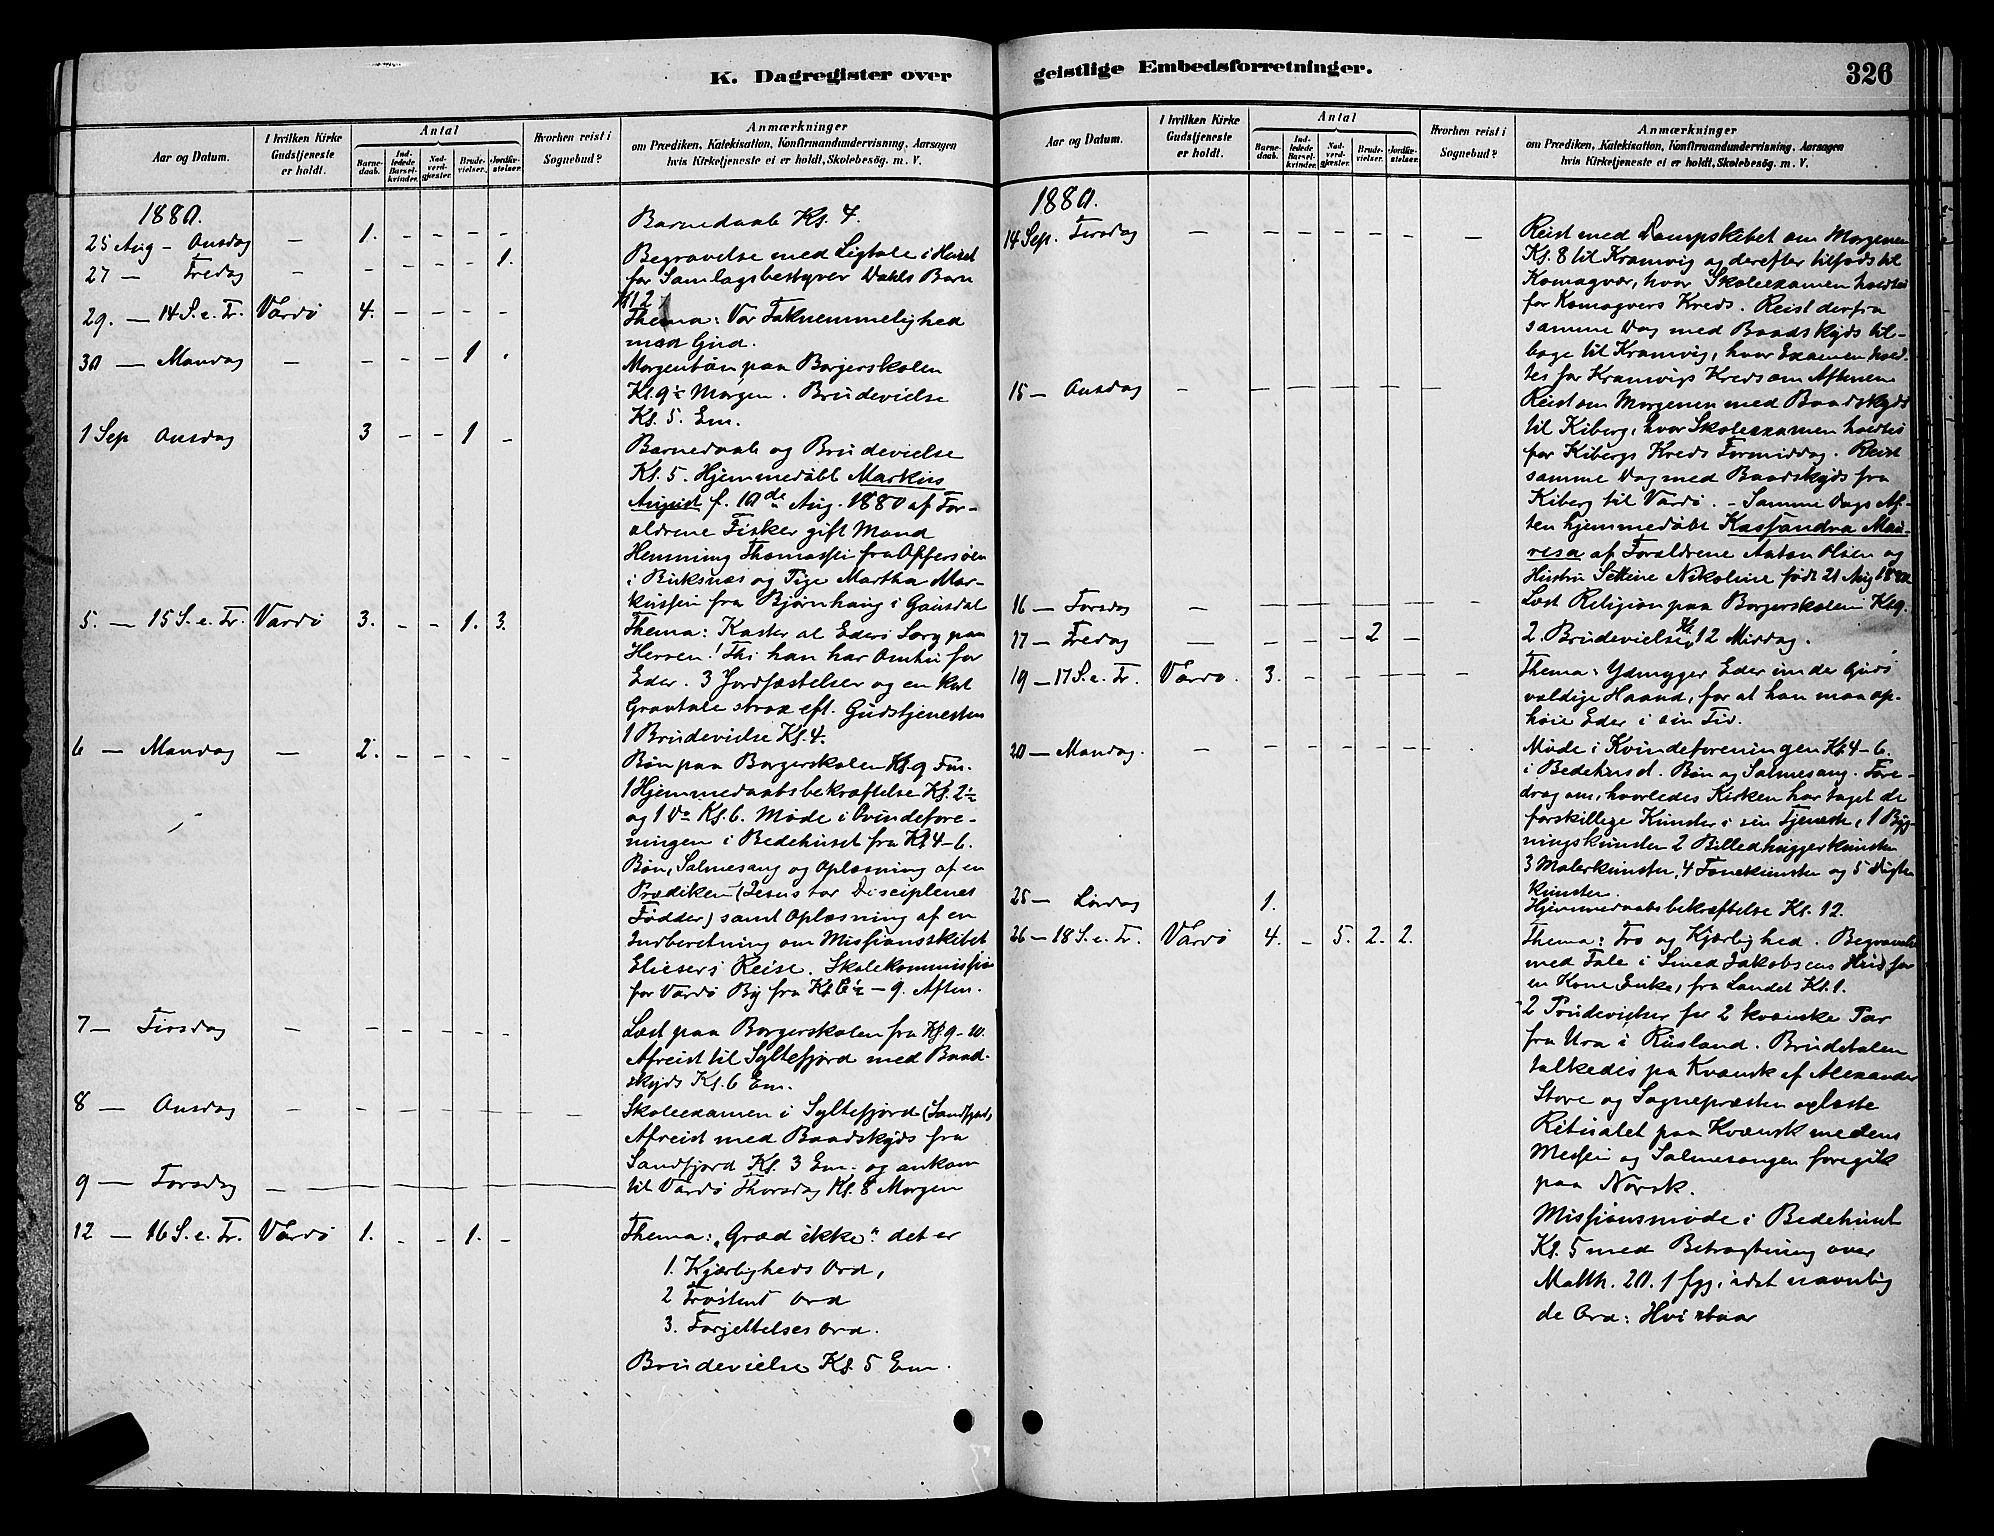 K. Dagregister over
Aar og Datum.
I hvilken Kirke Gudstjeneste er holdt.
Antal
Barnedaab.
Indledede Barselkvinder.
Nadverdgjester.
Brudevielser.
Jordfæstelser.
Hvorhen reist i Sognebud?
Anmærkninger
om Prædiken, Katekisation, Konfirmandundervisning, Aarsagen
hvis Kirketjeneste ei er holdt, Skolebesög. m. V.
1880.
25 Aug – Onsdag – 1. – – – – Barnedaab Kl. 4.
27 — Fredag – – – – – 1. Begravelse med Ligtale i Huset
for Samlagsbestyrer Dahls Barn
Kl 12
29. — 14 S. e. Tr. Vardö 4. – – – – Thema: Vor Taknemmelighed
mod Gud.
30 — Mandag – – – – 1 . Morgenbön paa Borgerskolen
Kl. 9½ Morgen. Brudevielse
Kl. 5. Em.
1 Sep Onsdag 3 – – 1 – Barnedaab og Brudevielse
Kl. 5. Hjemmedöbt Markus
August f. 10de Aug. 1880 af For-
ældrene Fisker gift Mand
Henning Thomassen fra Offersöen
i Buksnæs og Pige Martha Mar-
kussen fra Bjørnhaug i Gausdal
5. — 15 S. e. Tr. Vardö 3. – – 1. 3. Thema: Kaster al Eders Sorg paa
Herren! Thi han har Omhu for
Eder. 3 Jordfæstelser og en kort
Gravtale strax eft. Gudstjenesten
1 Brudevielse Kl. 4.
6 — Mandag – 2. – – – – Bön paa Borgerskolen Kl. 9 Fm.
1 Hjemmedaabsbekræftelse Kl. 2½
og 1 Do Kl. 6. Möde i Qvindefore-
ningen i Bedehuset fra Kl 4–6.
Bön, Salmesang og Oplæsning af en
Prædiken (Jesus tor Disciplenes
Födder) samt Oplæsning af en
Indberetning om Missionsskibet
Eliesers Reise. Skolekommission
for Vardö By fra Kl. 6½ – 9. Aften.
7 — Tirsdag – – – – – – Læst paa Borgerskolen fra Kl. 9–10.
Afreist til Syltefjord med Baad-
skyds Kl. 6 Em.
8 — Onsdag – – – – – – – Skoleexamen i Syltefjord (Sandfjord)
Afreist med Baadskyds fra
Sandfjord Kl. 3 Em. og ankom
9 — Torsdag – – – – – – – til Vardö Thorsdag Kl. 8 Morgen
12 — 16 S. e. Tr. Vardö 1. – – 1. – Thema: „Græd ikke“ det er
1. Kjærligheds Ord,
2 Tröstens Ord
3. Forjettelses Ord.
Brudevielse Kl. 5 Em.
geistlige Embedsforretninger.
326
Aar og Datum.
I hvilken Kirke Gudstjeneste er holdt.
Antal
Barnedaab.
Indledede Barselkvinder.
Nadverdgjester.
Brudevielser.
Jordfæstelser.
Hvorhen reist i Sognebud?
Anmærkninger
om Prædiken, Katekisation, Konfirmandundervisning, Aarsagen
hvis Kirketjeneste ei er holdt, Skolebesög. m. V.
1880.
14 Sep. Tirsdag – – – – – – – Reist med Dampskibet om Morgenen
Kl. 8 til Kramvig og derefter tilfods til
Komagvær, hvor Skoleexamen holdtes
for Komagvers Kreds. Reist derfra
samme Dag med Baadskyds til-
bage til Kramvig, hvor Examen hold-
tes for Kramvigs Kreds om Aftenen
15 — Onsdag – – – – – – – Reist om Morgenen med Baadskyds
til Kiberg, hvor Skoleexamen holdtes
for Kibergs Kreds Formiddag. Reist
samme Dag med Baadskyds fra
Kiberg til Vardö. – Samme Dags Af-
ten hjemmedöbt Kassandra Mau-
resa af Forældrene Anton Olsen og
Hustru Sekine Nikoline födt 21 Aug 1880
16 — Torsdag – – – – – – – Læst Religion paa Borgerskolen Kl 9.
17 — Fredag – – – – 2 – 2. Brudevielse Kl. 12 Middag.
19 — 17 S. e. Tr. Vardö. 3. – – – – – Thema: Ydmyger Eder under Guds
vældige Haand, for at han maa op-
höie Eder i sin Tid.
20 — Mandag. – – – – – – Möde i Kvindeforeningen Kl. 4–6.
i Bedehuset. Bön og Salmesang. Fore-
drag om, hvorledes Kirken har taget de
forskillige Kunster i sin Tjeneste, 1 Byg-
ningskunsten 2 Billedhuggerkunsten
3 Malerkunsten, 4 Tonekunsten og 5 Digte
kunsten.
25 — Lördag 1. Hjemmedaabsbekræftelse Kl. 12.
26 — 18 S. e. Tr. Vardö 4. – 5. 2. 2. Thema: Tro og Kjærlighed. Begravelse
med Tale i Smed Jakobsens Hus for
en Kone Enke, fra Landet Kl. 1.
2 Brudevielser for 2 kvænske Par
fra Ura i Rusland. Brudetalen
tolkedes paa Kvænsk af Alexander
Store og Sognepræsten oplæste
Ritualet paa Kvænsk medens
Messen og Salmesangen foregik
paa Norsk.
Missionsmöde i Bedehuset
Kl. 5 med Betragtning over
Matth. 20. 1 fgg. idet navnlig
de Ord: Hvi staar